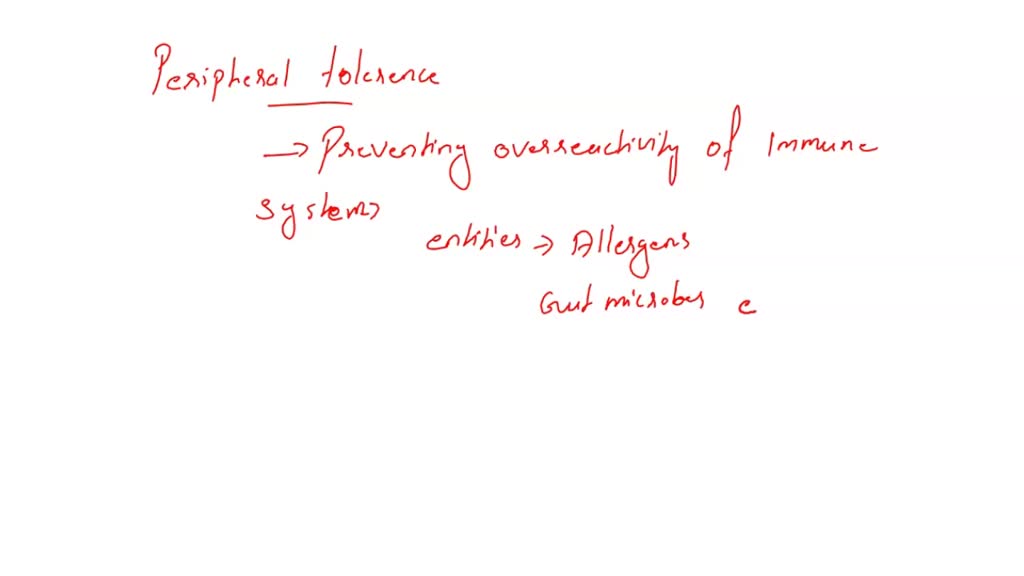 Peripheral tolerence
→ Preventing overreactivity of Immune
system
entities → Allergens
Gut microbes e